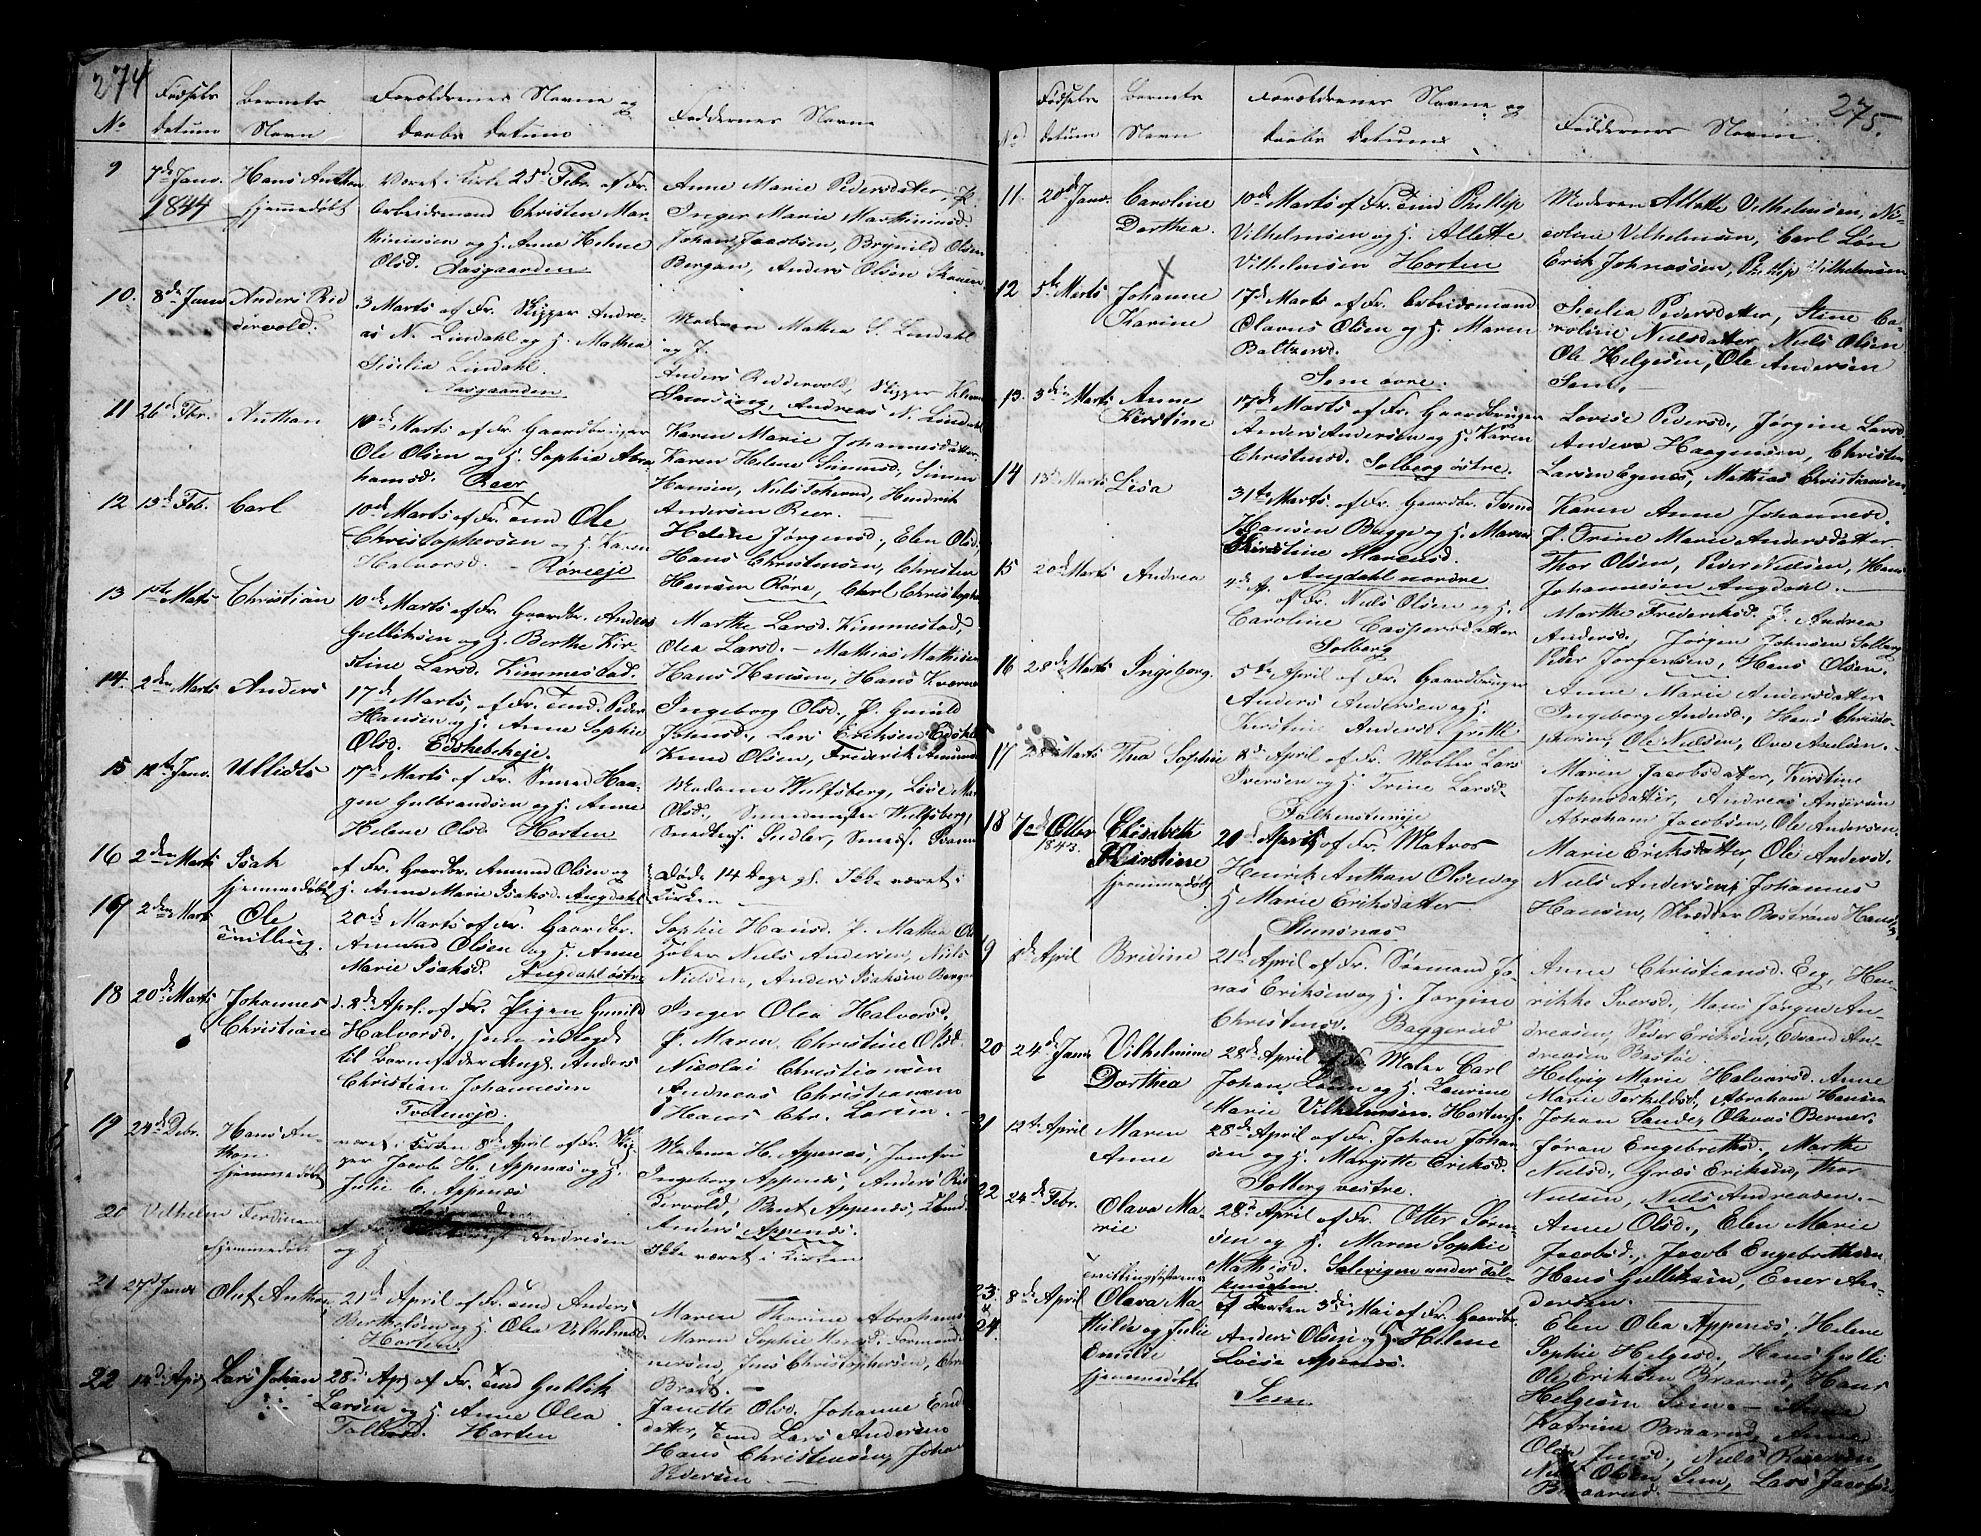 274
No
Fødsels
datum
Barnets
Navn
Forældrenes Navne og
Daabs Datum
Faddernes Navne
9
7de Janv.
1844
Hans Anthon
hjemmedøbt
Været i Kirke 25d Febr. af Fr.
Arbeidsmand Christen Mar-
thiniusen og H. Anne Helene
Olsd. Aasgaarden
Anne Marie Pedersdatter, P.
Inger Marie Marthiniusd.
Johan Jacobsen, Brynild Olsen
Bergan, Anders Olsen Skauen
10.
8de Janv
Anders Rid
dervold.
3 Marts af Fr. Skipper Andre-
as N. Lindahl og H. Mathea
Sicilia Lindahl.
Aasgaarden
Moderen Mathea S. Lindahl
og J.
Anders Riddervold, Skipper
Samsing, Andreas N. Lindahl
11
26d Fbr.
Anthon
10de Marts af Fr. Gaardbruger
Ole Olsen og H. Sophie Abra
hamsd. Reer
Karen Marie Johannesdatter
Karen Helene Simensd., Simen
Hansen, Niels Johansd, Hendrik
Andersen Reer.
12
13d Feb.
Carl
10de Marts af Fr. Eind Ole
Christophersen og H. Karen
Halvorsd. Røreeje
Helene Jørgensd., Elen Olsd.
Hans Christensen, Christen
Hansen Røre, Carl Christoph
13
1ste Mats
Christian
10de Marts af Fr. Gaardbr. Anders
Gulliksen og H. Berthe Kir-
stine Larsd. Kimmestad.
Marthe Larsd. Kimmestad,
Olea Larsd. – Mathias Mathisen
Hans Hansen, Hans Kværne
14.
2den Marts
Anders
17de Marts, af Fr. Eind. Peder
Hansen og H. Anne Sophie
Olsd.
Ingeborg Olsd. P. Gunild
Johnsd., Lars Eriksen
Knud Olsen, Frederik Amund
15
12te Janv.
17de Marts af Fr. Smed Haa-
gen Gulbrandsen og H. Anne
Helene Olsd. Horten
Madame Wulfsberg, Lovise
Olsd.
16
2den Marts
Isak
hjemmedøbt
af Fr. Gaardbr. Amund Olsen og
H. Anne Marie Isaksd. Augdahl
Døde 14 Dage gl. Ikke været i
Kirken
17
2den Marts
Ole
Tvilling.
20de Marts af Fr. Gaardbr.
Amund Olsen og H. Anne
Marie Isaksd. Augdahl østre
Sophie Hansd. P. Mathea
Niels Andersen, Niels
Nielsen, Anders Isaksen
18
20de Marts
Johannes
Christian
d. 2de April. af Fr. Pigen Gunild
Halvorsd., som udlagde
til Barnefader Ungk. Anders
Christian Johannesen
Inger Olea Halvorsd.
P. Maren Christine Olsd.
Nicolai Christiansen
Andreas Christiansen
Hans Chr. Larsen. –
19
24de Debr.
Hans An-
thon
hjemmedøbt
været i Kirken 8de April af Fr. Skip-
per Jacob H. Appenæs og H.
Julie C. Appenæs
Madame H. Appenæs, Jomfru
Ingeborg Appenæs, Anders Rid
dervold, Bent Appenæs,
Anders Appenæs.
20
Vilhelm Ferdinan
hjemmedøbt
af Fr. Andresen
og H
Ikke været i Kirken
21
27d Janv
Oluf Anthon
21de April af Fr. Eind Anders
Berthelsen og H. Olea Vilhelmsd
Horten
Maren Thorine Abrahams
Maren Sophie
Jens Christophersen,
22
14d April
Lars Johan
28d Apr af Fr. Eind Gullik
Larsen og H. Anne Olea
Horten
Janette Olsd. Johanne
datter, Eind Lars Andersen
Hans Christensen, Johan
Pedersen
275.
No
Fødsels
datum
Barnets
Navn
Forældrenes Navne og
Daabs Datum
Faddernes Navne.
11.
20de Janv.
Caroline
Dorthea.
10de Marts af Fr. Eind Phillip
Vilhelmsen og H. Allette
Vilhelmsen Horten
Moderen Allette Vilhelmsen, Ni-
coline Vilhelmsen, Carl Løve
Erik Johnassen, Philip Vilhelmsen
12
5te Marts
Johanne
Karine
17de Marts af Fr. Arbeidsmand
Olavus Olsen og H. Maren
Baltzersd.
Sem øvre.
Sicilia Pedersdatter, Stine Ca-
roline Nielsdatter, Niels Olsen
Ole Helgesen, Ole Andersen
Sem. –
13.
3die Marts
Anne
Kirstine
17de Marts af Fr. Gaardbruger
Anders Andersen og H. Karen
Christensd. Solberg østre.
Lovise Pedersd., Jørgine Larsd
Anders Haagensen, Christen
Larsen Egenes, Mathias Christiansen
14
13de Marts
Lisa
31te Marts af Fr. Gaardbr. Svend
Hansen Bugge og H. Maren
Kirstine Marensd.
Augdahl nordre
Karen Anne Johannesd.
P. Trine Marie Andersdatter
Thor Olsen, Peder Nielsen, Hans
Johannesen Augdahl. –
15
20de Marts
Andrea
4de A. af Fr. Niels Olsen og H.
Caroline Caspersdatter
Solberg
Marthe Frederiksd. P. Andrea
Andersd., Jørgen Johnsen Solberg
Peder Jørgensen, Hans Olsen.
16
28de Marts
Ingeborg.
5te April af Fr. Gaardbruger
Anders Andersen og H.
Kirstine Andersd.
Anne Marie Andersdatter
Ingeborg Andersd., Hans Christo-
phersen, Ole Nielsen, Ove Axelsen. –
17
28de Marts
Thea Sophie
2de April af Fr. Møller Lars
Iversen og H. Trine Larsd.
Falkensteneje
Maren Jacobsdatter, Kirstine
Johnsdatter, Andreas Andersen
Abraham Jacobsen, Ole Andersen
18
7de Octbr
1843.
Elisabeth
Kirstine
hjemmedøbt
20de April af Fr. Matros
Henrik Anthon Olsen og
H Marie Eriksdatter.
Marie Eriksdatter, Ole Andersd.
Niels Andersen, Johannes
Hansen, Skrædder Bastrøm
19
de April
Bredine
21de April af Fr. Sømand Jo-
nas Eriksen og H. Jørgine
Christensd. Baggerud
Anne Christiansd. Eeg, Hen-
rikke Iversd., Hans Jørgen An-
dreasen, Peder Eriksen, Edvard An-
dreasen Bastøe
20
24de Janv
Vilhelmine
Dorthea
28de April af Fr. Maler Carl
Johan Løven og H. Laurine
Marie Vilhelmsen.
Helvig Marie Halvorsd. Anne
Marie Terkelsd. Abraham Hansen
Johan Sande, Olavus Berner.
21
12te April
Maren
Anne
28de April af Fr. Johan Johan
sen og H. Margette Eriksd.
Solberg vestre.
Jøran Engebrethsd, Marthe
Nielsd., Græs Eriksen, Thor
Nielsen, Niels Andreasen. –
22
24de Febr.
Olava Ma-
rie
28d April af Fr. Otter Søren-
sen og H. Maren Sophie
Mathisd. Solevigen under Fal-
kensteen
Anne Olsd., Elen Marie
Jacobsd., Jacob Engebrethsen
Hans Gulliksen, Ener An-
dersen.
23
&
24.
8de April
Tvillingsøstrene
Olava Ma-
thilde og Julie
Emilie
hjemmedøbt
I Kirken 3die Mai af Fr. Gaardbr.
Anders Olsen og H Helene
Lovise Apenæs.
Sem
Elen Olea Appenæs, Helene
Sophie Helgesd., Hans Gulli
Ole Eriksen Braarud, Hans
Helgesen Sem. – Anne
Katrine Braarud, Anne
Olea Jensd., Niels Reiersen
Niels Olsen Sem, Lars Jacobsen
Braarud.